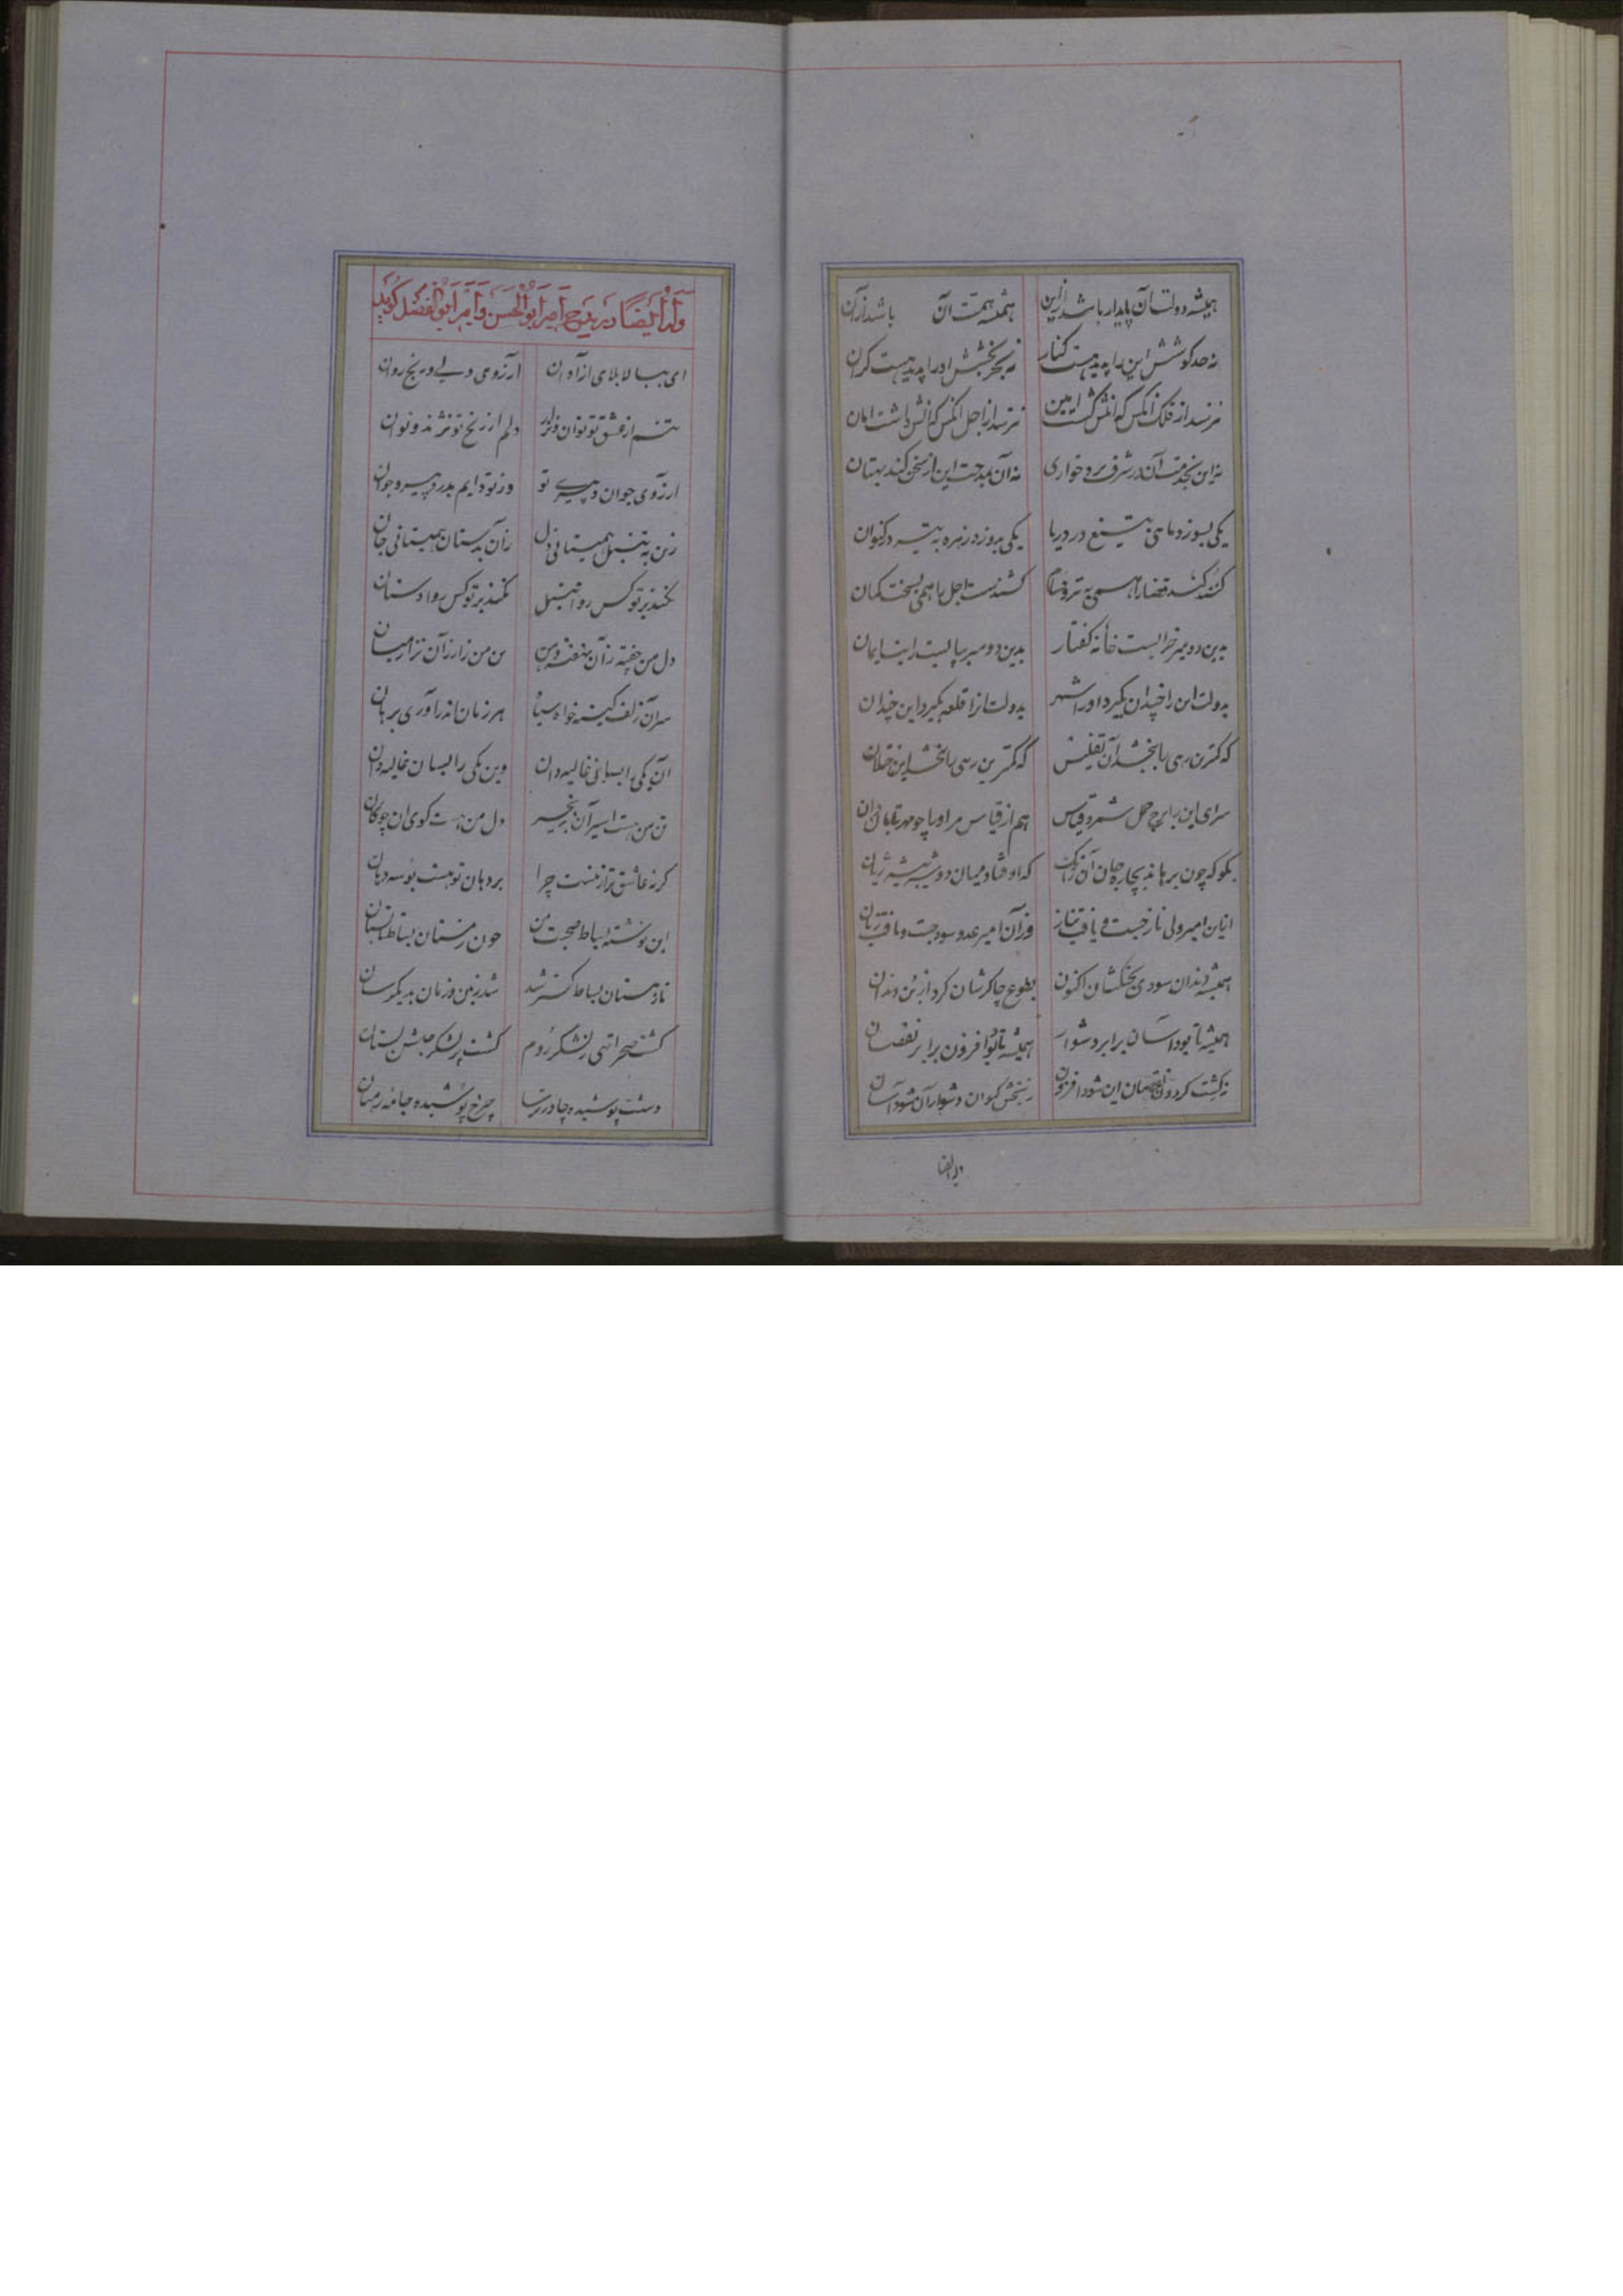 همیشه دولت آن پایدار باشد ازین همیشه همت آن باشد از آن
نه حد کوشش این را پدید هست کنار نه بحر بخشش او را پدید هست کران
نترسد از فلک آنکس که آنش گشت امین نترسد از اجل آنکس که آنش داشت امان
نه این بخدمت آن در شرف برد خواری نه آن بمدحت این از سخن کند بهتان
یکی بسوزد ماهی بتیغ در دریا یکی بدوزد زهره به تیر در کیوان
کنند کند قضا را همی به کشندست اجل را همی بسخت کمان
بدین دو میر خرابست خانه کفتار بدین دو میر بپایست رایت ایمان
بدولت این را چندان بگیرد او را شهر بدولت آن را قلعه بگیرد این چندان
که کمترین رهی را ببخشد آن تفلیس که کمترین رهی را بخشد این ختلان
سرای این را برج حمل شمرد قیاس هم از قیاس مر او را چو مهر تابان دان
بگو که چون برهاند بچاره جان آن کو اوفتاد میان دو شیر شرزه ژیان
ازین امیر ولی ناز جست و یافت نیاز وز آن امیر عدو سود جست و یافت زیان
همیشه دندان سودی بجنگشان اکنون بطوع چاکرشان کرد از بن دندان
همیشه تا بود آسان برابر دشوار همیشه تا بود افزون برابر نقصان
ز گشت گردون نقصان این شود افزون ز بخش کیوان دشوار آن شود آسان
وله ایضا
وله ایضا در مدح امیر ابوالحسن و امیر ابوالفضل گوید
ای ببالا بلای آزادان آرزوی دلی و رنج روان
تنم از عشق تو نوان و نزار دلم از رنج تو نژند و نوان
آرزوی جوان و پیری تو وز تو دایم بدرد پیر و جوان
زین به تنبل همیستانی دل زان بدستان همیستانی جان
نکند بر تو کس روا تنبل نکند بر تو کس روا دستان
دل من خفته زان بنفشه تن من زار زان نزار میان
سر آن زلف کینه خواه سیاه هر زمان اندر آوری بر بان
آن یکی را بسان غالیه دان وین یکی را بسان غالیه دان
تن من هست اسیر آن زنجیر دل من هست گوی آن چوگان
گر نه عاشق تر از منست چرا بر دهان تو هست بوسه دهان
این نوشته بساط صحبت من چون زمستان بساط تابستان
تا زمستان بساط گستر شد شد زمین و زمان بدیگر سان
گشت صحرا تهی ز لشکر روم گشت پر لشکر حبش بستان
دشت پوشیده چادر ترسا چرخ پوشیده جامه رهبان